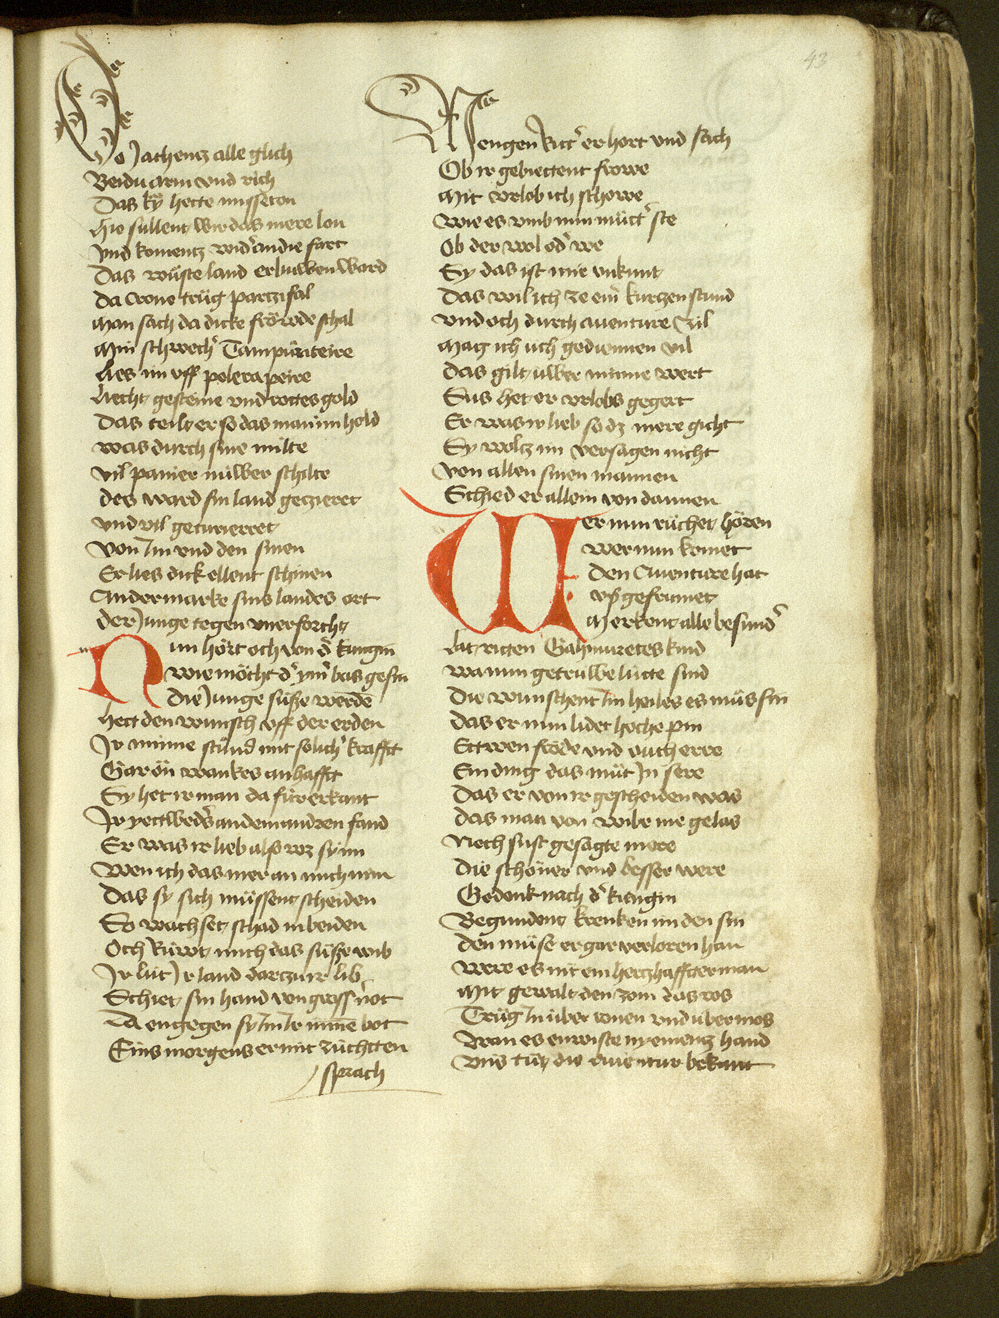 43
Do Jachentz alle glich
Beidu arm vnd rich
Das ky hette misseton
Hie sullent wir das mere lon
Vnd koment wid' an die fart
Das wüste land erbuwen ward
Da crone trüg partzifal
Man sach da dicke fröwde schal
Min schwech' Tampunteire
Lies im vff polerapeire
Liecht gesteine vnd rottes gold
Das teilt er so das man im hold
Was durch sine milte
Vil panier nüwer schilte
Des ward sin land getzieret
Vnd vil geturnierret
Von Im vnd den sinen
Er lies dick ellent schinen
An der marke sins landes ort
Der Junge tegen vnerforcht
Nun hört och von d' kungin
Wie möcht d' ym' bas gesin
Die Junge süsse werde
Hett den wunsch vff der erden
Ir minne stünd mit solich' krafft
Gar on wankes anhafft
Sy het ir man da für erkant
Ir yettweds an dem andren fand
Er was ir lieb als wz sy im
Wen ich das mer an mich nim
Das sy sich müssent scheiden
So wachset schad in beiden
Och rüwt mich das süsse wib
Ir lüt Ir land dartzu ir lib
Schiet sin hand von gross' not
Da engegen sy Im Ir minne bot
Eins morgens er mit züchtten
sprach
Mengen Ritt' er hort vnd sach
Ob ir gebiettent frowe
Mit vrlob ich schowe
Wie es vmb min mütt' ste
Ob der wol od' we
Sy das ist mir vnkunt
Das wil ich ze ein' kurtzen stund
Vnd och durch auenture zil
Mag ich üch gedienen vil
Das gilt üwer minne wert
Sus het er vrlobs gegert
Er was ir lieb so dz mere gicht
Sy woltz im versagen nicht
Von allen sinen mannen
Schied er allein von dannen
Wer nun rüchet hören
Wer nun komet
Den Auenture hat
vs gefrumet
Merkent alle besund'
Lat ritten Gahmuretes kind
Wa nun getrüwe lütte sind
Die wunschent Im heiles es müs sin
Das er nun lidet hoche pin
Ettwen fröde vnd ouch erre
Ein ding das müt In sere
Das er von ir gescheiden was
Das man von wibe nie gelas
Noch sust gesagte mere
Die schöner vnd besser were
Gedenk nach d' kungin
Begundent krenken im den sin
Den müse er gar verloren han
Were es nit ein hertzhaffter man
Mit gewalt den zom das ros
Trüg In über ronen vnd über mos
Wan es enwiste nyementz hand
Vns tüt die auentur bekant